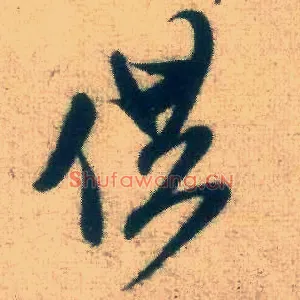 供
Shufawang.CN